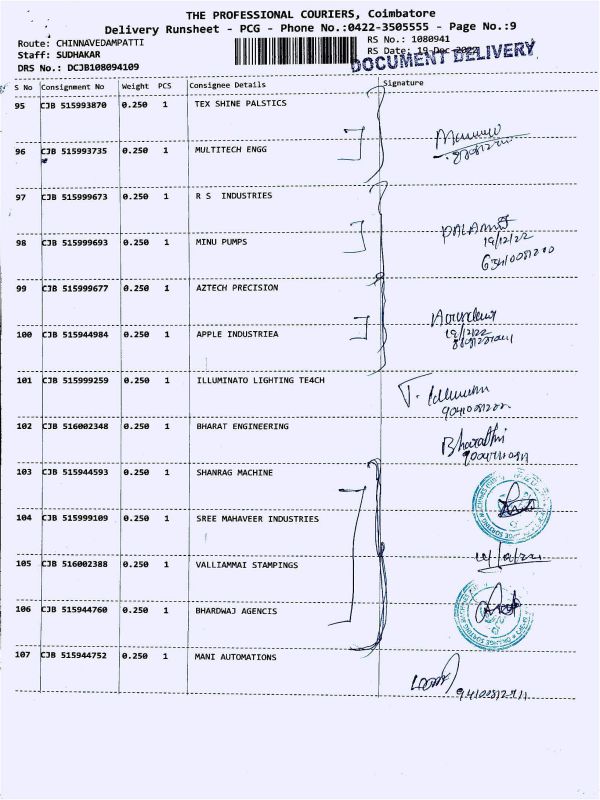 THE PROFESSIONAL COURIERS, Coimbatore
Delivery Runsheet - PCG - Phone No.:0422-3505555 - Page No.:9
Route: CHINNAVEDAMPATTI
RS No.: 1080941
Staff: SUDHAKAR
RS Date: 19-Dec-2022
DOCUMENT DELIVERY
DRS No.: DCJB108094109
S No Consignment No Weight PCS Consignee Details Signature
95 CJB 515993870 0.250 1 TEX SHINE PALSTICS
96 CJB 515993735 0.250 1 MULTITECH ENGG
97 CJB 515999673 0.250 1 R S INDUSTRIES
98 CJB 515999693 0.250 1 MINU PUMPS
19/12/22
99 CJB 515999677 0.250 1 AZTECH PRECISION
100 CJB 515944984 0.250 1 APPLE INDUSTRIEA
19/12/22
101 CJB 515999259 0.250 1 ILLUMINATO LIGHTING TE4CH
102 CJB 516002348 0.250 1 BHARAT ENGINEERING
Bharathi
103 CJB 515944593 0.250 1 SHANRAG MACHINE
104 CJB 515999109 0.250 1 SREE MAHAVEER INDUSTRIES
105 CJB 516002388 0.250 1 VALLIAMMAI STAMPINGS
106 CJB 515944760 0.250 1 BHARDWAJ AGENCIS
107 CJB 515944752 0.250 1 MANI AUTOMATIONS